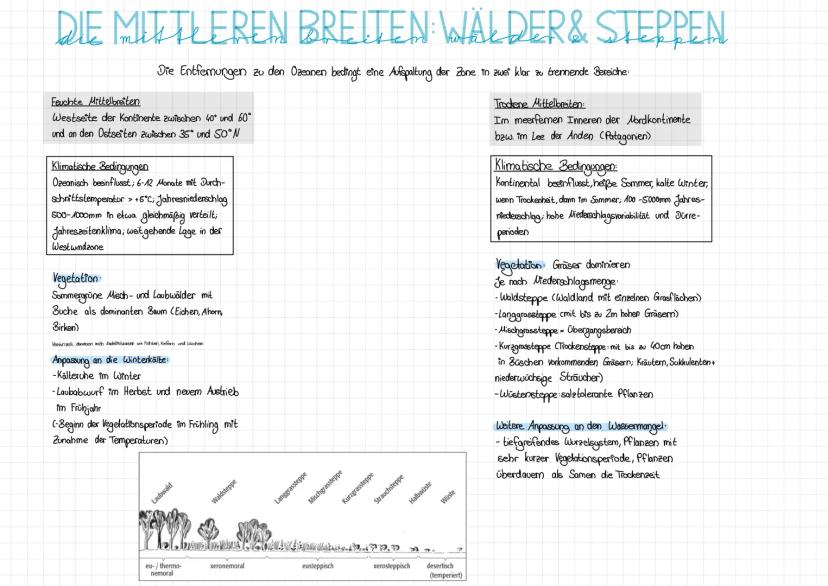 DIE MITTLEREN BREITEN: WÄLDER & STEPPEN
die mittleren breiten wälder & steppen
Die Entfernungen zu den Ozeanen bedingt eine Aufspaltung der Zone in zwei klar zu trennende Bereiche:
Feuchte Mittelbreiten
Westseite der Kontinente zwischen 40° und 60°
und an den Ostseiten zwischen 35° und 50°N
Klimatische Bedingungen
Ozeanisch beeinflusst; 6-12 Monate mit Durch-
schnittstemperatur > +5°C; Jahresniederschlag
500-1000mm in etwa gleichmäßig verteilt;
Jahreszeitenklima; weitgehende Lage in der
Westwindzone
Vegetation:
Sommergrüne Misch- und Laubwälder mit
Buche als dominanten Baum (Eichen, Ahorn,
Birken)
wie Fichten, Kiefern und Lärchen
Anpassung an die Winterkälte:
-Kälteruhe im Winter
-Laubabwurf im Herbst und neuem Austrieb
im Frühjahr
(-Beginn der Vegetationsperiode im Frühling mit
Zunahme der Temperaturen)
Trockene Mittelbreiten:
Im meerfernen Inneren der Nordkontinente
bzw. im Lee der Anden (Patagonien)
Klimatische Bedingungen:
Kontinental beeinflusst, heiße Sommer, kalte Winter,
wenn Trockenheit, dann im Sommer; 100-5000mm Jahres-
niederschlag; hohe Niederschlagsvariabilität und Dürre-
perioden
Vegetation: Gräser dominieren
Je nach Niederschlagsmenge:
-Waldsteppe (Waldland mit einzelnen Grasflächen)
-Langgrassteppe (mit bis zu 2m hohen Gräsern)
-Mischgrassteppe = Übergangsbereich
-Kurzgrassteppe (Trockensteppe: mit bis zu 40cm hohen
in Büschen vorkommenden Gräsern; Kräutern, Sukkulenten +
niederwüchsige Sträucher)
-Wüstensteppe: salztolerante Pflanzen
Weitere Anpassung an den Wassermangel:
- tiefgreifendes Wurzelsystem, Pflanzen mit
sehr kurzer Vegetationsperiode, Pflanzen
überdauern als Samen die Trockenzeit
Laubwald
Waldsteppe
Langgrassteppe
Mischgrassteppe
Kurzgrassteppe
Strauchsteppe
Halbwüste
Wüste
eu- / thermo-
nemoral
xeronemoral
eusteppisch
xerosteppisch
desertisch
(temperiert)